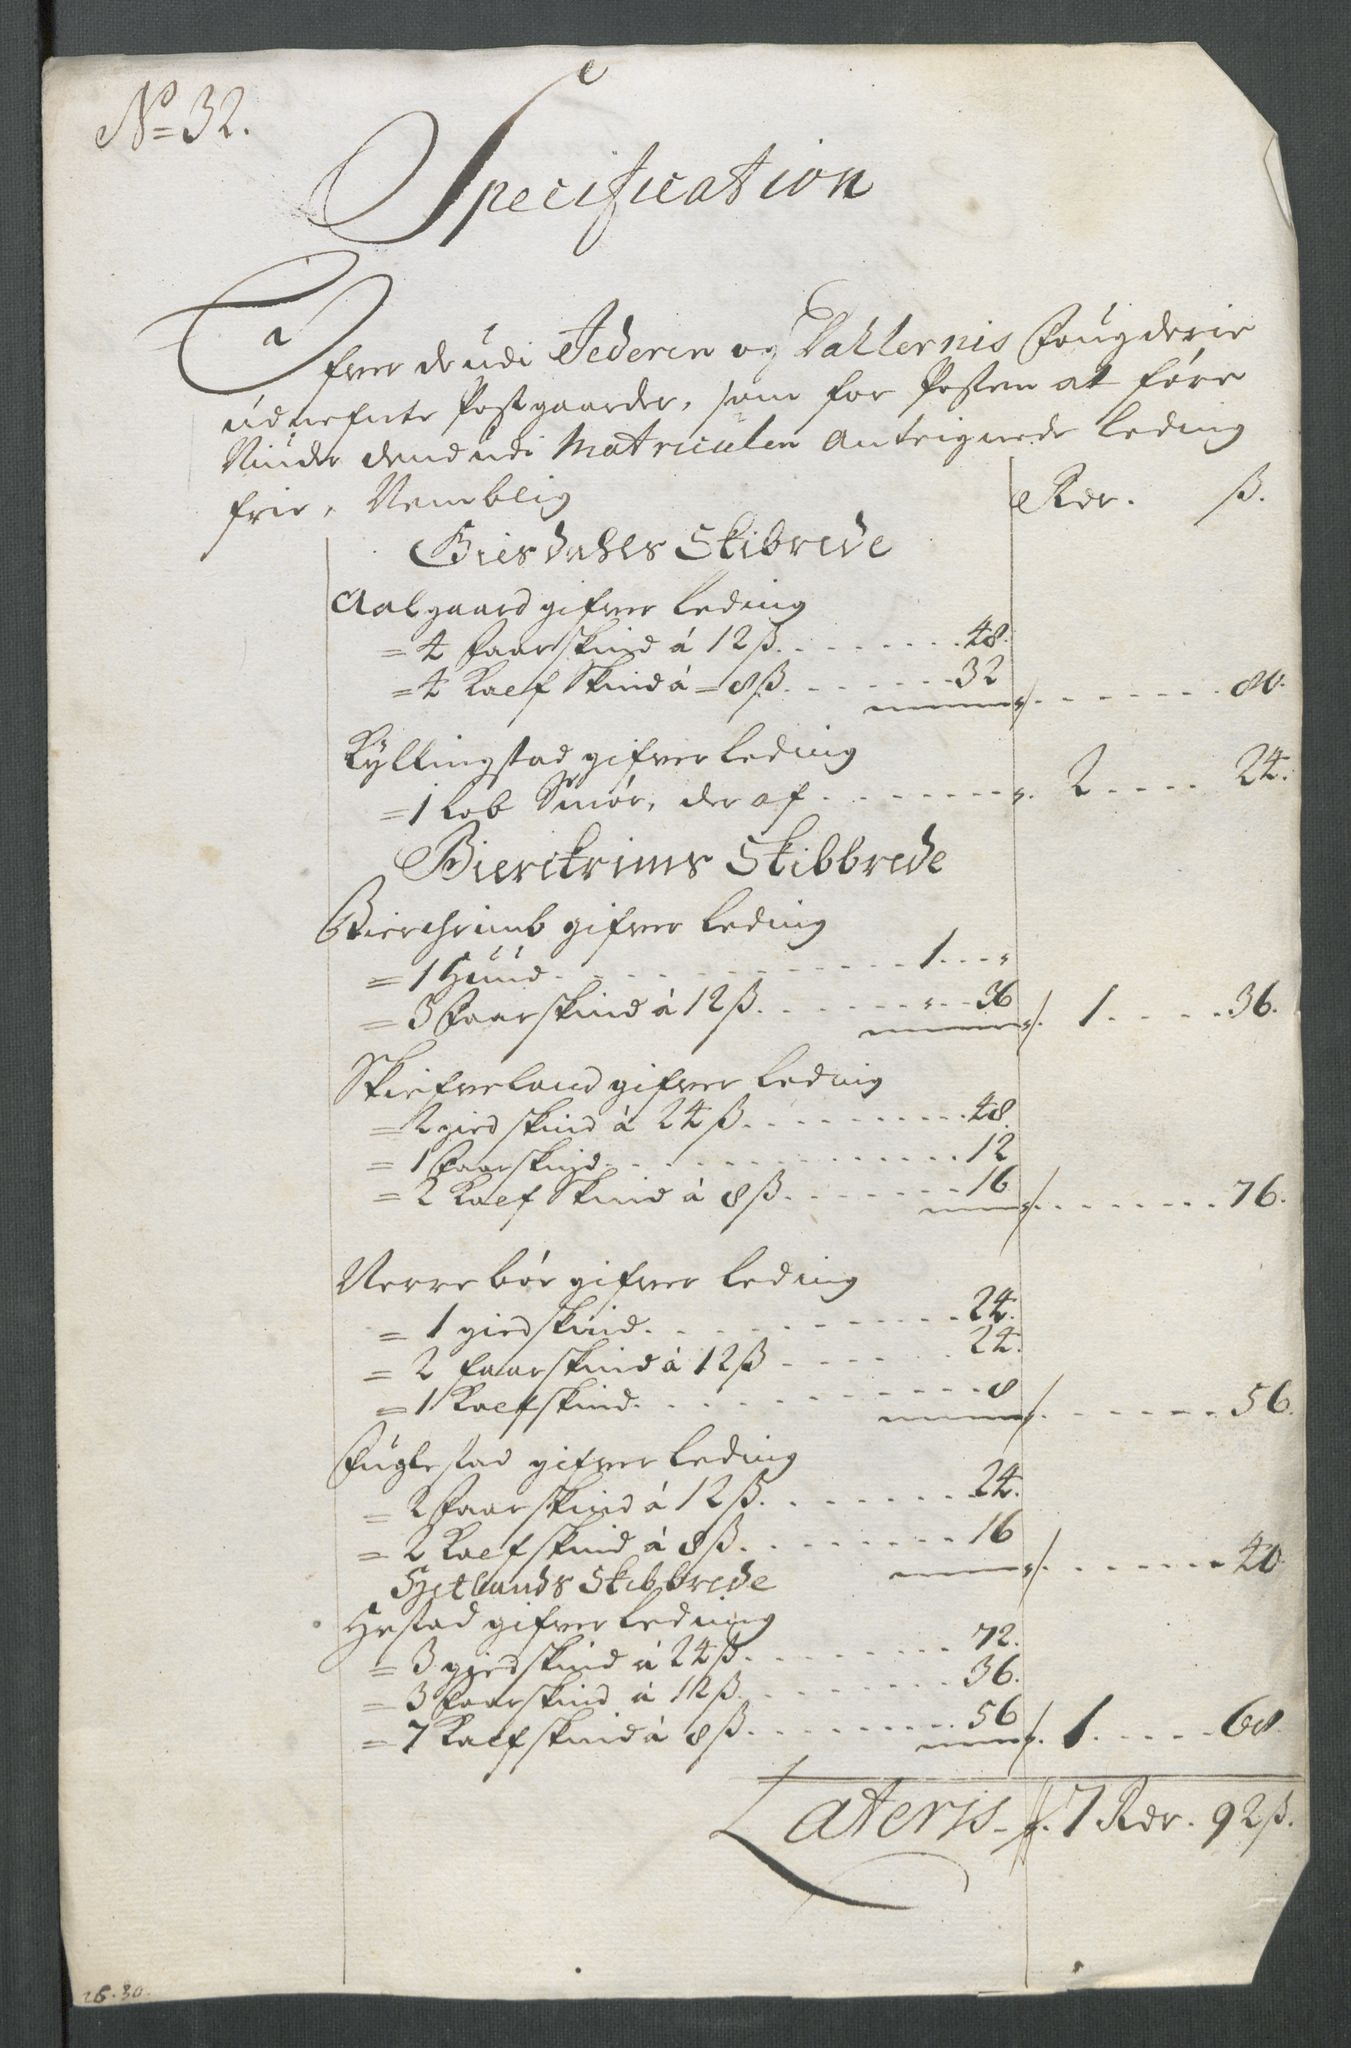 No 32.
Specification
Ofver de udi Jederen og Dahlernis Fougderie
udnefnte Postgaarder, som for Posten at føre
Niuder dend udi Matriculen Anteignede leding
frie, Nemblig Rdr. ß.
Giesdahls Skibrede
Aalgaard gifver leding
= 4 Faarskind á 12 ß. 48.
= 4 Kalf Skind á = 8 ß. 32 80.
Kyllingstad gifver leding
= 1 Lob Smør, der af 2 24.
Bierckrims Skibbrede
Bierchrimb gifver leding
= 1 Huud 1
= 3 Faarskind á 12 ß. 36 1 36.
Skiefveland gifver leding
= 2 gied skind á 24 ß. 48.
= 1 Faarskind 12
= 2 Kalf Skind á 8 ß. 16 76.
Nerrebøe gifver leding
= 1 giedskind 24.
= 2 faarskind á 12 ß 24.
= 1 Kalfskind 8 56.
Fuglestad gifver leding
= 2 Faarskind á 12 ß. 24.
= 2 Kalfskind á 8 ß. 16 40
Hetlands Skibbrede
Hestad gifver leding
= 3 giedskind á 24 ß. 72.
= 3 Faarskind á 12 ß. 36.
= 7 Kalfskind á 8 ß. 56 1 68.
Lateris 7 Rdr. 92 ß.
26.30.